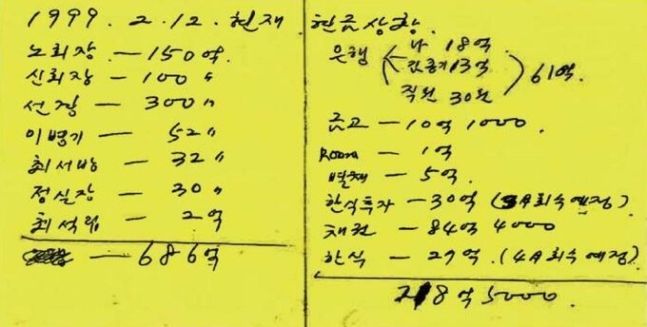 1999. 2. 12. 현재
노회장 — 150억.
신회장 — 100 〃
선장 — 300 〃
이병기 — 52 〃
최서방 — 32 〃
정실장 — 30 〃
최석립 — 2억
— 686억
현금상황.
은행
나 18억.
13억
직원 30억
61억.
금고 — 10억 1000.
Room — 1억
별채 — 5억.
한식투자 — 30억 (회수예정)
채권 — 84억 4000
한식 — 27억. (4月 회수예정)
218억 5000.